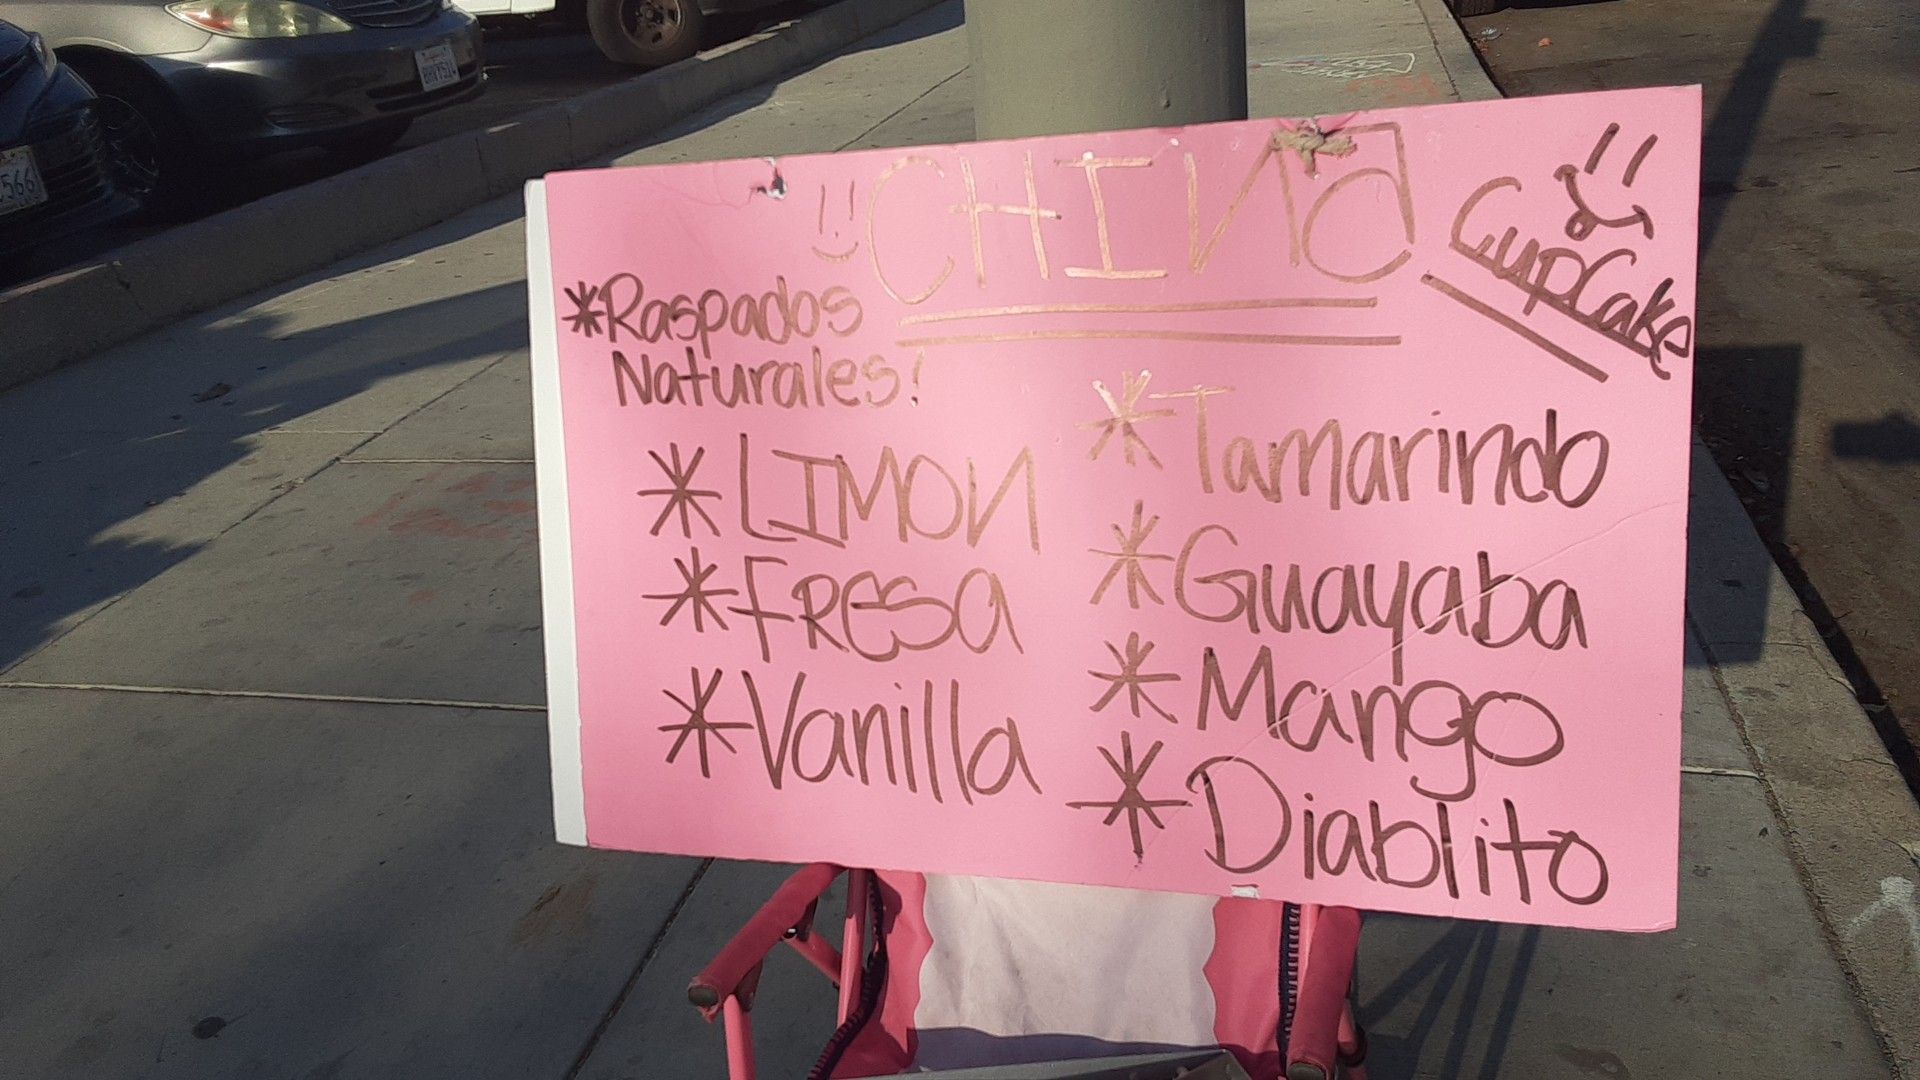 CHINA
CupCake
*Raspados
Naturales!
*LIMON
*FRESA
*Vanilla
*Tamarindo
*Guayaba
*Mango
*Diablito